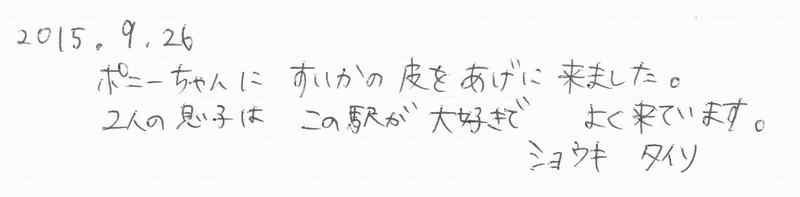 2015.9.26
ポニーちゃんに すいかの皮をあげに来ました。
2人の息子は この駅が大好きで よく来ています。
ショウキ タイソ